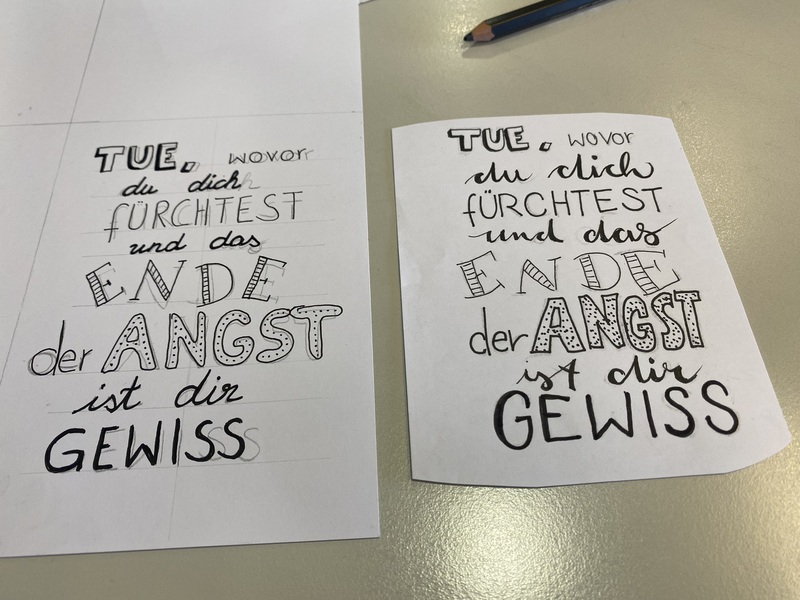 TUE, wovor
du dich
fÜRCHTEST
und das
ENDE
der ANGST
ist dir
GEWISS
TUE, wovor
du dich
fÜRCHTEST
und das
ENDE
der ANGST
ist dir
GEWISS